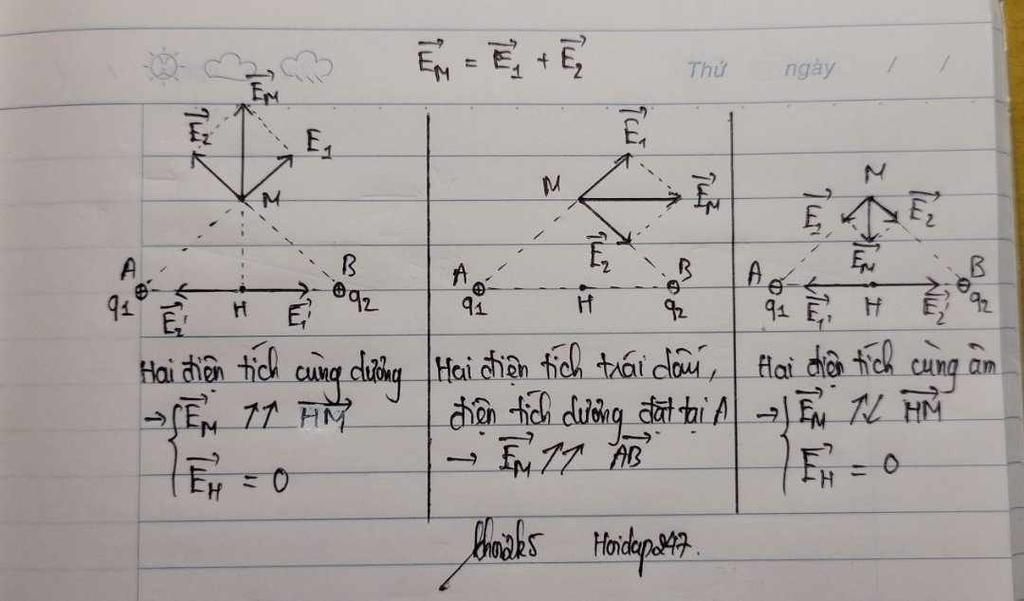 Thứ ngày / /
E⃗_M = E⃗_1 + E⃗_2
E⃗_M
E⃗_2
E_1
M
A
B
q_1
H
q_2
E⃗_2'
E⃗_1'
Hai điện tích cùng dương
→ { E⃗_M ↑↑ HM⃗
E⃗_H = 0
E⃗_1
M
E⃗_M
E⃗_2
A
B
q_1
H
q_2
Hai điện tích trái dấu,
điện tích dương đặt tại A
→ E⃗_M ↑↑ AB⃗
M
E⃗_1
E⃗_2
E⃗_M
A
B
q_1
E⃗_1'
H
E⃗_2'
q_2
Hai điện tích cùng âm
→ { E⃗_M ↑↓ HM⃗
E⃗_H = 0
Hoidap247.